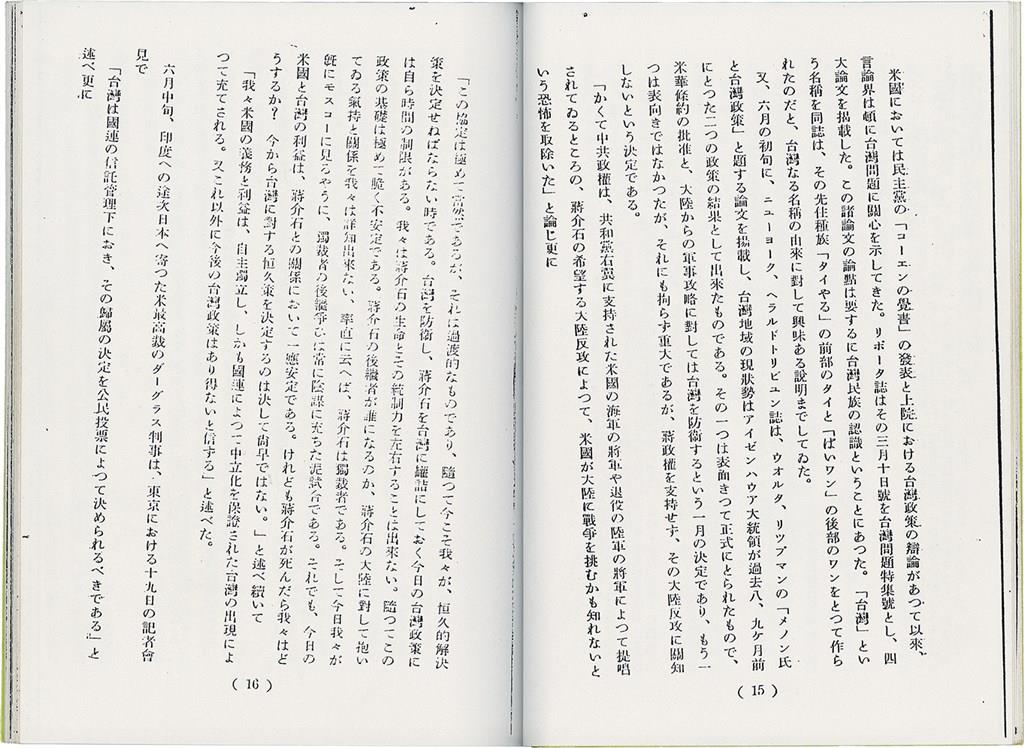 米國においては民主黨の「コーエンの覺書」の發表と上院における台灣政策の辯論があつて以來、
言論界は頓に台灣問題に關心を示してきた。リポータ誌はその三月十日號を台灣問題特集號とし、四
大論文を揭載した。この諸論文の論點は要するに台灣民族の認識ということにあつた。「台灣」とい
う名稱を同誌は、その先住種族「タイやる」の前部のタイと「ぱいワン」の後部のワンをとつて作ら
れたのだと、台灣なる名稱の由來に對して興味ある說明までしてゐた。
又、六月の初旬に、ニューヨーク、ヘラルドトリビユン誌は、ウオルタ、リツプマンの「メノン氏
と台灣政策」と題する論文を揭載し、台灣地域の現狀勢はアイゼンハウア大統領が過去八、九ケ月前
にとつた二つの政策の結果として出來たものである。その一つは表面きつて正式にとられたもので、
米華條約の批准と、大陸からの軍事攻略に對しては台灣を防衞するという一月の決定であり、もう一
つは表向きではなかつたが、それにも拘らず重大であるが、蔣政權を支持せず、その大陸反攻に關知
しないという決定である。
「かくて中共政權は、共和黨右翼に支持された米國の海軍の將軍や退役の陸軍の將軍によつて提唱
されてゐるところの、蔣介石の希望する大陸反攻によつて、米國が大陸に戰爭を挑むかも知れないと
いう恐怖を取除いた」と論じ更に
(15)
「この協定は極めて當然であるが、それは過渡的なものであり、隨つて今こそ我々が、恒久的解決
策を決定せねばならない時である。台灣を防衞し、蔣介石を台灣に罐詰にしておく今日の台灣政策に
は自ら時間の制限がある。我々は蔣介石の生命とその統制力を左右することは出來ない。隨つてこの
政策の基礎は極めて脆く不安定である。蔣介石の後繼者が誰になるのか、蔣介石の大陸に對して抱い
てゐる氣持と關係を我々は詳知出來ない、率直に云へば、蔣介石は獨裁者である。そして今日我々が
旣にモスコーに見るやうに、獨裁者の後繼爭ひは常に陰謀に充ちた泥試合である。それでも、今日の
米國と台灣の利益は、蔣介石との關係において一應安定である。けれども蔣介石が死んだら我々はど
うするか? 今から台灣に對する恒久策を決定するのは決して尙早ではない。」と述べ續いて
「我々米國の義務と利益は、自主獨立し、しかも國連によつて中立化を保證された台灣の出現によ
つて充てされる。又これ以外に今後の台灣政策はあり得ないと信する」と述べた。
六月中旬、印度への途次日本へ寄つた米最高裁のダーグラス判事は、東京における十九日の記者會
見で
「台灣は國連の信託管理下におき、その歸屬の決定を公民投票によつて決められるべきである」と
述べ更に
(16)